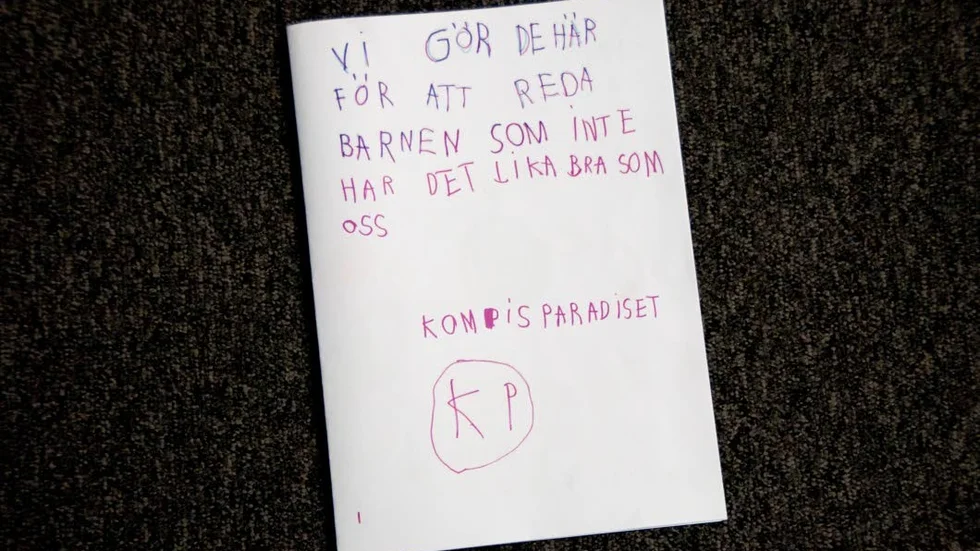 Vi GÖR DE HÄR
FÖR ATT REDA
BARNEN SOM iNTE
HAR DET LiKA BRA SOM
OSS
KOMPiS PARADiSET
KP
1